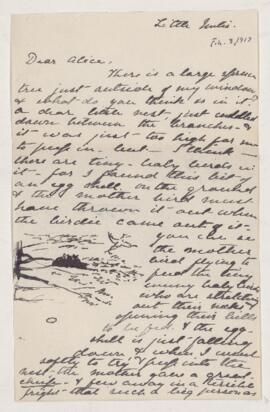 Little Metis.
Feb. 3/1913
Dear Alice.
There is a large spruce
tree just outside of my window
& what do you think is in it?
a dear little nest just cuddled
down between the branches - &
it was just too high for me
to peep in. but - I think
there are tiny - baby birds in
it - for I found this bit of
an egg shell, on the ground
& the mother bird must
have thrown it out when
the birdie came out of it -
you can see
the mother
bird flying to
feed the tiny
baby birds
who are stretching
out their necks &
opening their bills
to be fed. & the egg
shell is just falling
down & when I went
softly to try & peep into the
nest - the mother gave a great
& flew away in a terrible
fright - that such a big person as